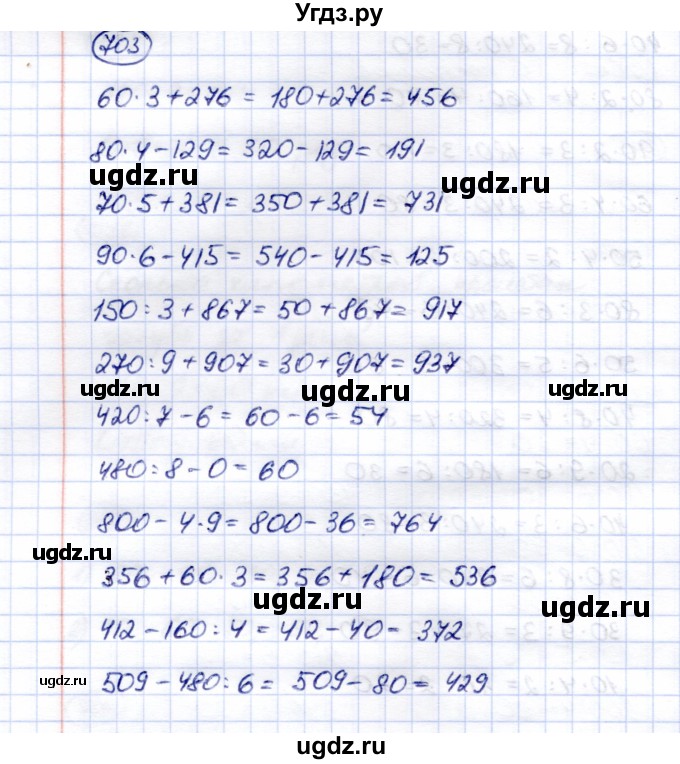 Угдз.ру
703
60·3+276 = 180+276 = 456
80·4-129 = 320-129 = 191
ugdz.ru ugdz.ru
70·5+381 = 350+381 = 731
90·6-415 = 540-415 = 125
150:3+867 = 50+867 = 917
270:9+907 = 30+907 = 937
ugdz.ru ugdz.ru ugdz.ru
420:7-6 = 60-6 = 54
480:8-0 = 60
800-4·9 = 800-36 = 764
ugdz.ru
356+60·3 = 356+180 = 536
ugdz.ru ugdz.ru
412-160:4 = 412-40- 372
ugdz.ru
509-480:6 = 509-80 = 429
ugdz.ru
ugdz.ru